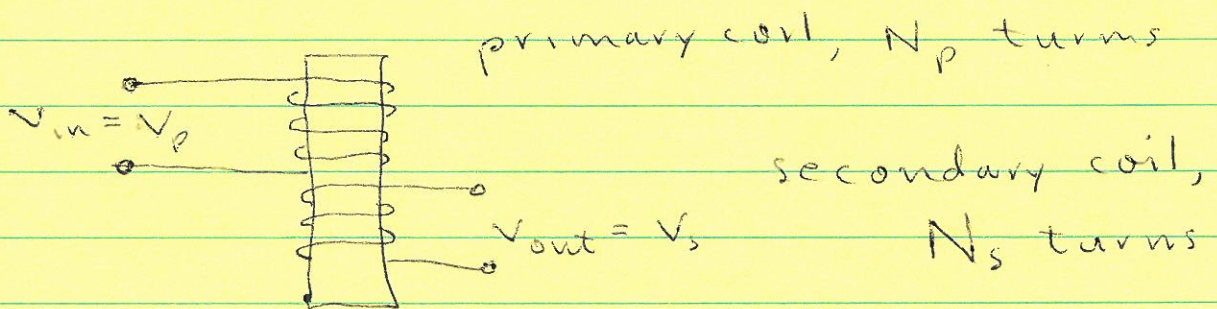 primary coil, Np turns
Vin = Vp
secondary coil,
Vout = Vs
Ns turns